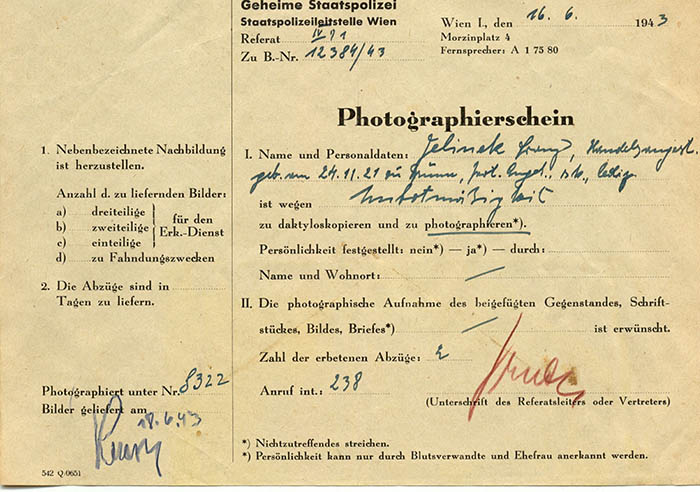 Geheime Staatspolizei
Staatspolizeileitstelle Wien
Referat IV
Zu B.-Nr. 12384/43
Wien I., den 16. 6. 1943
Morzinplatz 4
Fernsprecher: A 1 75 80
Photographierschein
1. Nebenbezeichnete Nachbildung
ist herzustellen.
Anzahl d. zu liefernden Bilder:
a) dreiteilige
b) zweiteilige
c) einteilige
für den
Erk.-Dienst
d) zu Fahndungszwecken
2. Die Abzüge sind in
Tagen zu liefern.
Photographiert unter Nr. 8322
Bilder geliefert am
18.6.43
542 Q/0651
I. Name und Personaldaten: Jelinek Franz, Handelsangest.
geb. am 24.11.21 zu Brünn, Prot. Angeh., led.
ist wegen Unbotmäßigkeit
zu daktyloskopieren und zu photographieren*).
Persönlichkeit festgestellt: nein*) — ja*) — durch:
Name und Wohnort: —
II. Die photographische Aufnahme des beigefügten Gegenstandes, Schrift-
stückes, Bildes, Briefes*) — ist erwünscht.
Zahl der erbetenen Abzüge: 2
Anruf int.: 238
(Unterschrift des Referatsleiters oder Vertreters)
*) Nichtzutreffendes streichen.
*) Persönlichkeit kann nur durch Blutsverwandte und Ehefrau anerkannt werden.